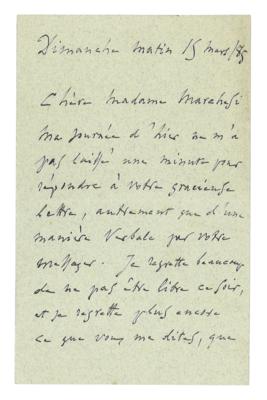 Dimanche matin 15 mars/75
Chère Madame Marchesi
Ma journée d'hier ne m'a
pas laissé une minute pour
répondre à votre gracieuse
lettre, autrement que d'une
manière verbale par votre
messager. Je regrette beaucoup
de ne pas être libre ce soir,
et je regrette plus encore
ce que vous me dites, que